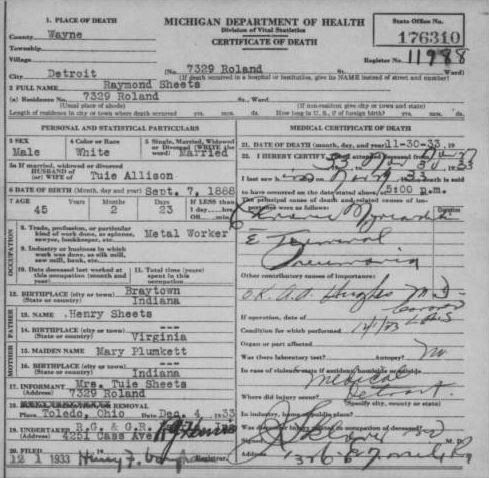 1. PLACE OF DEATH
County Wayne
Township
Village
City Detroit
MICHIGAN DEPARTMENT OF HEALTH
Division of Vital Statistics
CERTIFICATE OF DEATH
State Office No.
176310
Register No. 11988
(No. 7329 Roland St. Ward)
(If death occurred in a hospital or institution, give its NAME instead of street and number)
2 FULL NAME Raymond Sheets
(a) Residence No. 7329 Roland St., Ward.
(Usual place of abode) (If non-resident give city or town and state)
Length of residence in city or town where death occurred yrs. mos. ds. How long in U. S., if of foreign birth? yrs. mos. ds.
PERSONAL AND STATISTICAL PARTICULARS
3 SEX
Male
4 Color or Race
White
5 Single, Married, Widowed
or Divorced (WRITE the word)
Married
5a If married, widowed or divorced
HUSBAND of
(or) WIFE of Tuie Allison
6 DATE OF BIRTH (Month, day and year) Sept. 7, 1888
7 AGE Years Months Days If LESS than
45 2 23
OCCUPATION
8. Trade, profession, or particular
kind of work done, as spinner,
sawyer, bookkeeper, etc. Metal Worker
9. Industry or business in which
work was done, as silk mill,
saw mill, bank, etc.
10. Date deceased last worked at
this occupation (month and
year)
11. Total time (years)
spent in this
occupation
12. BIRTHPLACE (city or town) Braytown
(State or country) Indiana
FATHER
13. NAME Henry Sheets
14. BIRTHPLACE (city or town) ---
(State or country) Virginia
MOTHER
15. MAIDEN NAME Mary Plumkett
16. BIRTHPLACE (city or town) ---
(State or country) Indiana
17. INFORMANT Mrs. Tuie Sheets
(Address) 7329 Roland
18. REMOVAL
Place Toledo, Ohio Date Dec. 4, 1933
19. UNDERTAKER R.G. & G.R.
(Address) 4251 Cass Ave
20. FILED
12 1 1933 Henry F. Registrar.
MEDICAL CERTIFICATE OF DEATH
21. DATE OF DEATH (month, day, and year) 11-30-33, 19
22. I HEREBY CERTIFY, That I attended deceased from
I last saw h death is said
to have occurred on the date stated above, at 5:00 p.m.
The principal cause of death and related causes of importance were as follows:
Duration
Chronic Myocarditis
Terminal
Pneumonia
Other contributory causes of importance:
O.K. Hughes M.D.
If operation, date of
Condition for which performed
Organ or part affected
Was there laboratory test? Autopsy? No
In case of violence state if accident, homicide or suicide
Medical
Where did injury occur?
(Specify city, county or state)
In industry, home or public place?
Was disease or injury related to occupation of deceased?
Signed M. D.
Address